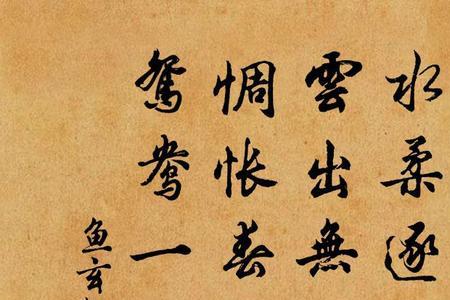 水柔逐
雲出無
惆怅春
鴛鴦一
鱼玄